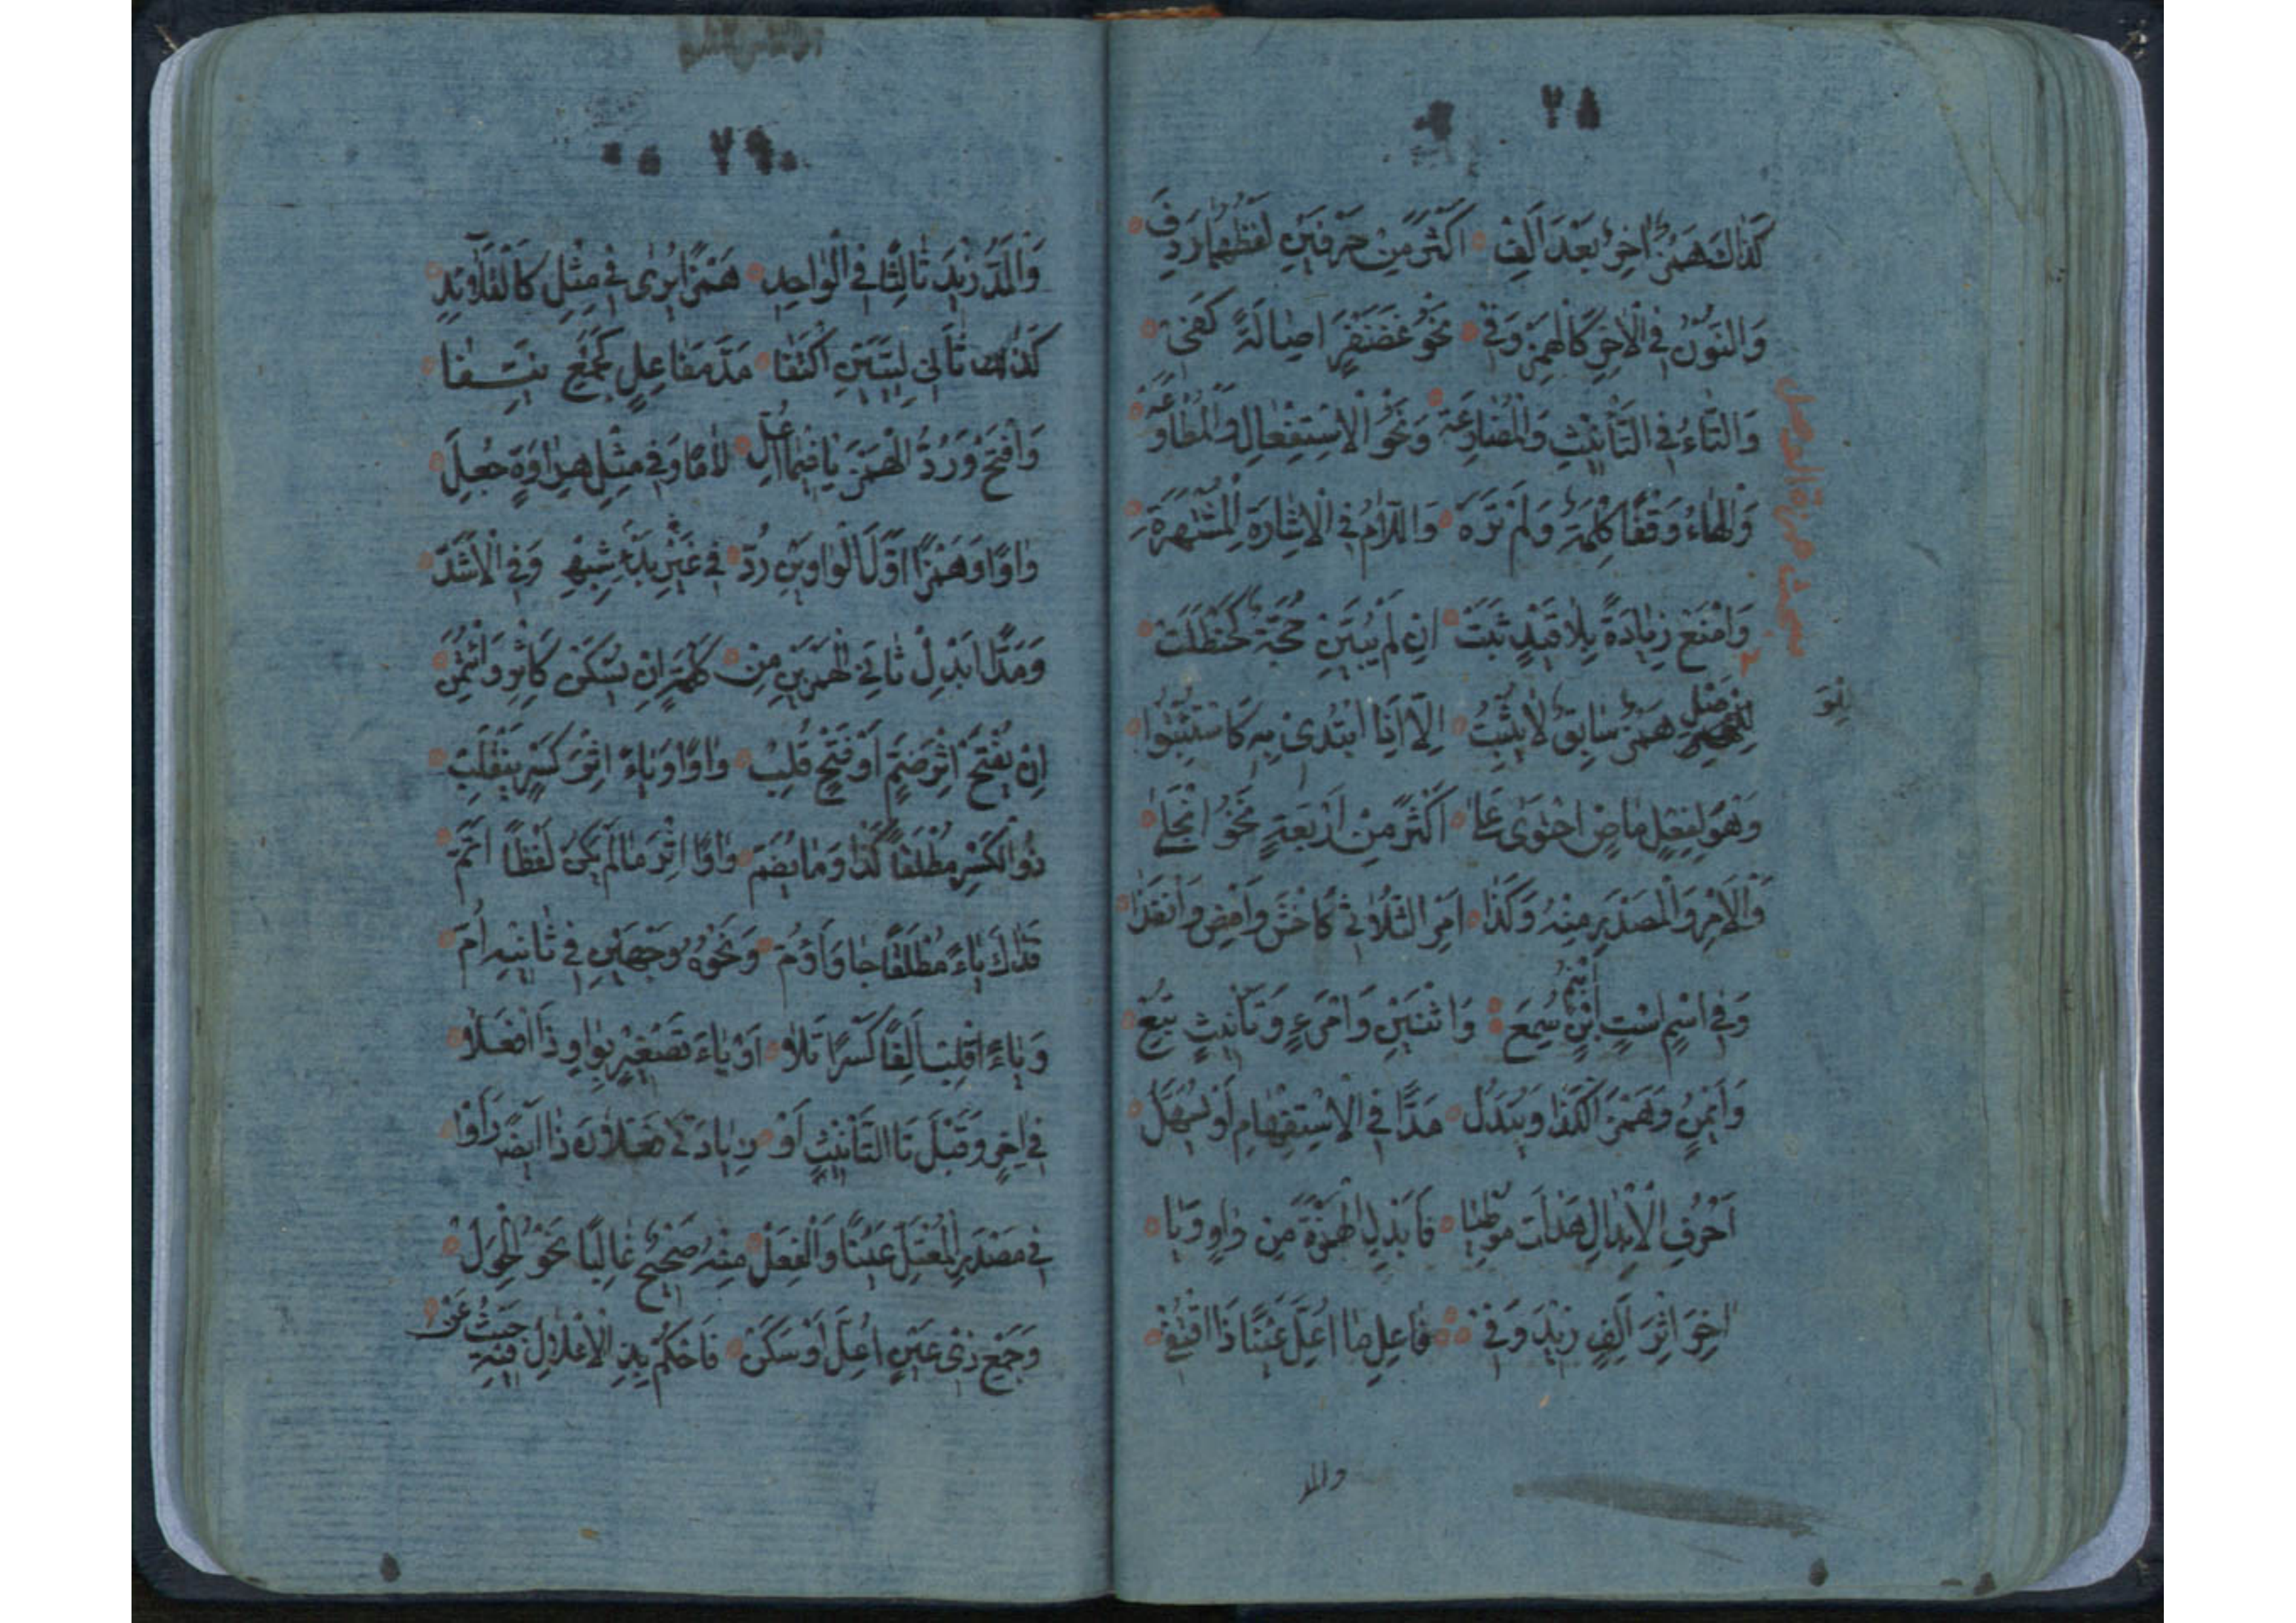 ٧٥
كَذَاكَ هَمْزٌ اٰخِرٌ بَعْدَ اَلِفْ اَكْثَرَ مِنْ حَرْفَيْنِ لَفْظُهَا رَدِفَ
وَالنُّونُ فِي الْاٰخِرِ كَالْهَمْزِ وَفِي نَحْوِ غَضَنْفَرٍ اَصَالَةً كُفِيْ
وَالتَّاءُ فِي التَّأْنِيْثِ وَالْمُضَارَعَةْ وَنَحْوِ الْاِسْتِفْعَالِ وَالْمُطَاوَعَةْ
وَالْهَاءُ وَقْفًا كَلِمَهْ وَلَمْ تَرَهْ وَاللَّامُ فِي الْاِشَارَةِ الْمُشْتَهِرَةْ
وَامْنَعْ زِيَادَةً بِلَا قَيْدٍ ثَبَتْ اِنْ لَمْ يُبَيَّنْ حُجَّةٌ كَحَظِلَتْ
لِلْوَ
لِلْوَصْلِ هَمْزٌ سَابِقٌ لَا يَثْبُتُ اِلَّا اِذَا ابْتُدِیَ بِهِ كَاسْتَثْبِتُوا
وَهْوَ لِفِعْلٍ مَاضٍ احْتَوٰى عَلٰى اَكْثَرَ مِنْ اَرْبَعَةٍ نَحْوُ انْجَلٰى
وَالْاَمْرِ وَالْمَصْدَرِ مِنْهُ وَكَذَا اَمْرُ الثُّلَاثِي كَاخْشَ وَامْضِ وَانْفُذَا
وَفِي اسْمٍ اسْتٍ ابْنٍ ابْنُمٍ سُمِعَ وَاثْنَيْنِ وَامْرِءٍ وَتَأْنِيْثٍ تَبِعْ
وَاَيْمُنُ وَهَمْزُ اَلْ كَذَا وَيُبْدَلُ مَدًّا فِي الْاِسْتِفْهَامِ اَوْ يُسَهَّلُ
اَحْرُفُ الْاِبْدَالِ هَدَأْتَ مُوْطِيَا فَاَبْدِلِ الْهَمْزَةَ مِنْ وَاوٍ وَيَا
اٰخِرًا اِثْرَ اَلِفٍ زِيْدَ وَفِي فَاعِلِ مَا اُعِلَّ عَيْنًا ذَا اقْتُفِيْ
والمد
٧٩
وَالْمَدُّ زِيْدَ ثَالِثًا فِي الْوَاحِدِ هَمْزًا يُرٰى فِي مِثْلِ كَالْقَلَائِدِ
كَذَاكَ ثَانِي لَيِّنَيْنِ اكْتَنَفَا مَدَّ مَفَاعِلٍ كَجَمْعٍ نَيِّفَا
وَافْتَحْ وَرُدَّ الْهَمْزَ يَا فِيْمَا اُعِلّ لَامًا وَفِي مِثْلِ هِرَاوَةٍ جُعِلَ
وَاوًا وَهَمْزًا اَوَّلَ الْوَاوَيْنِ رُدّ فِي غَيْرِ بَدْءِ شِبْهِ وُفِيَ الْاَشُدّ
وَمَدًّا ابْدِلْ ثَانِيَ الْهَمْزَيْنِ مِنْ كَلِمَةٍ اِنْ يَسْكُنْ كَاٰثِرْ وَائْتُمِنْ
اِنْ يُفْتَحِ اثْرَ ضَمٍّ اَوْ فَتْحٍ قُلِبْ وَاوًا وَيَاءً اِثْرَ كَسْرٍ يَنْقَلِبْ
ذُو الْكَسْرِ مُطْلَقًا كَذَا وَمَا يُضَمّ وَاوًا اَصِرْ مَا لَمْ يَكُنْ لَفْظًا اَتَمّ
فَذَاكَ يَاءً مُطْلَقًا جَا وَاَؤُمّ وَنَحْوُهُ وَجْهَيْنِ فِي ثَانِيْهِ اُمّ
وَيَاءً اقْلِبْ اَلِفًا كَسْرًا تَلَا اَوْ يَاءَ تَصْغِيْرٍ بِوَاوٍ ذَا افْعَلَا
فِي اٰخِرٍ وَقَبْلَ تَا التَّأْنِيْثِ اَوْ زِيَادَتَيْ فَعْلَانَ ذَا اَيْضًا رَأَوْا
فِي مَصْدَرِ الْمُعْتَلِّ عَيْنًا وَالْفِعَلْ مِنْهُ صَحِيْحٌ غَالِبًا نَحْوُ الْحِوَلْ
وَجَمْعُ ذِيْ عَيْنٍ اُعِلَّ اَوْ سَكَنْ فَاحْكُمْ بِذِي الْاِعْلَالِ فِيْهِ حَيْثُ عَنّ